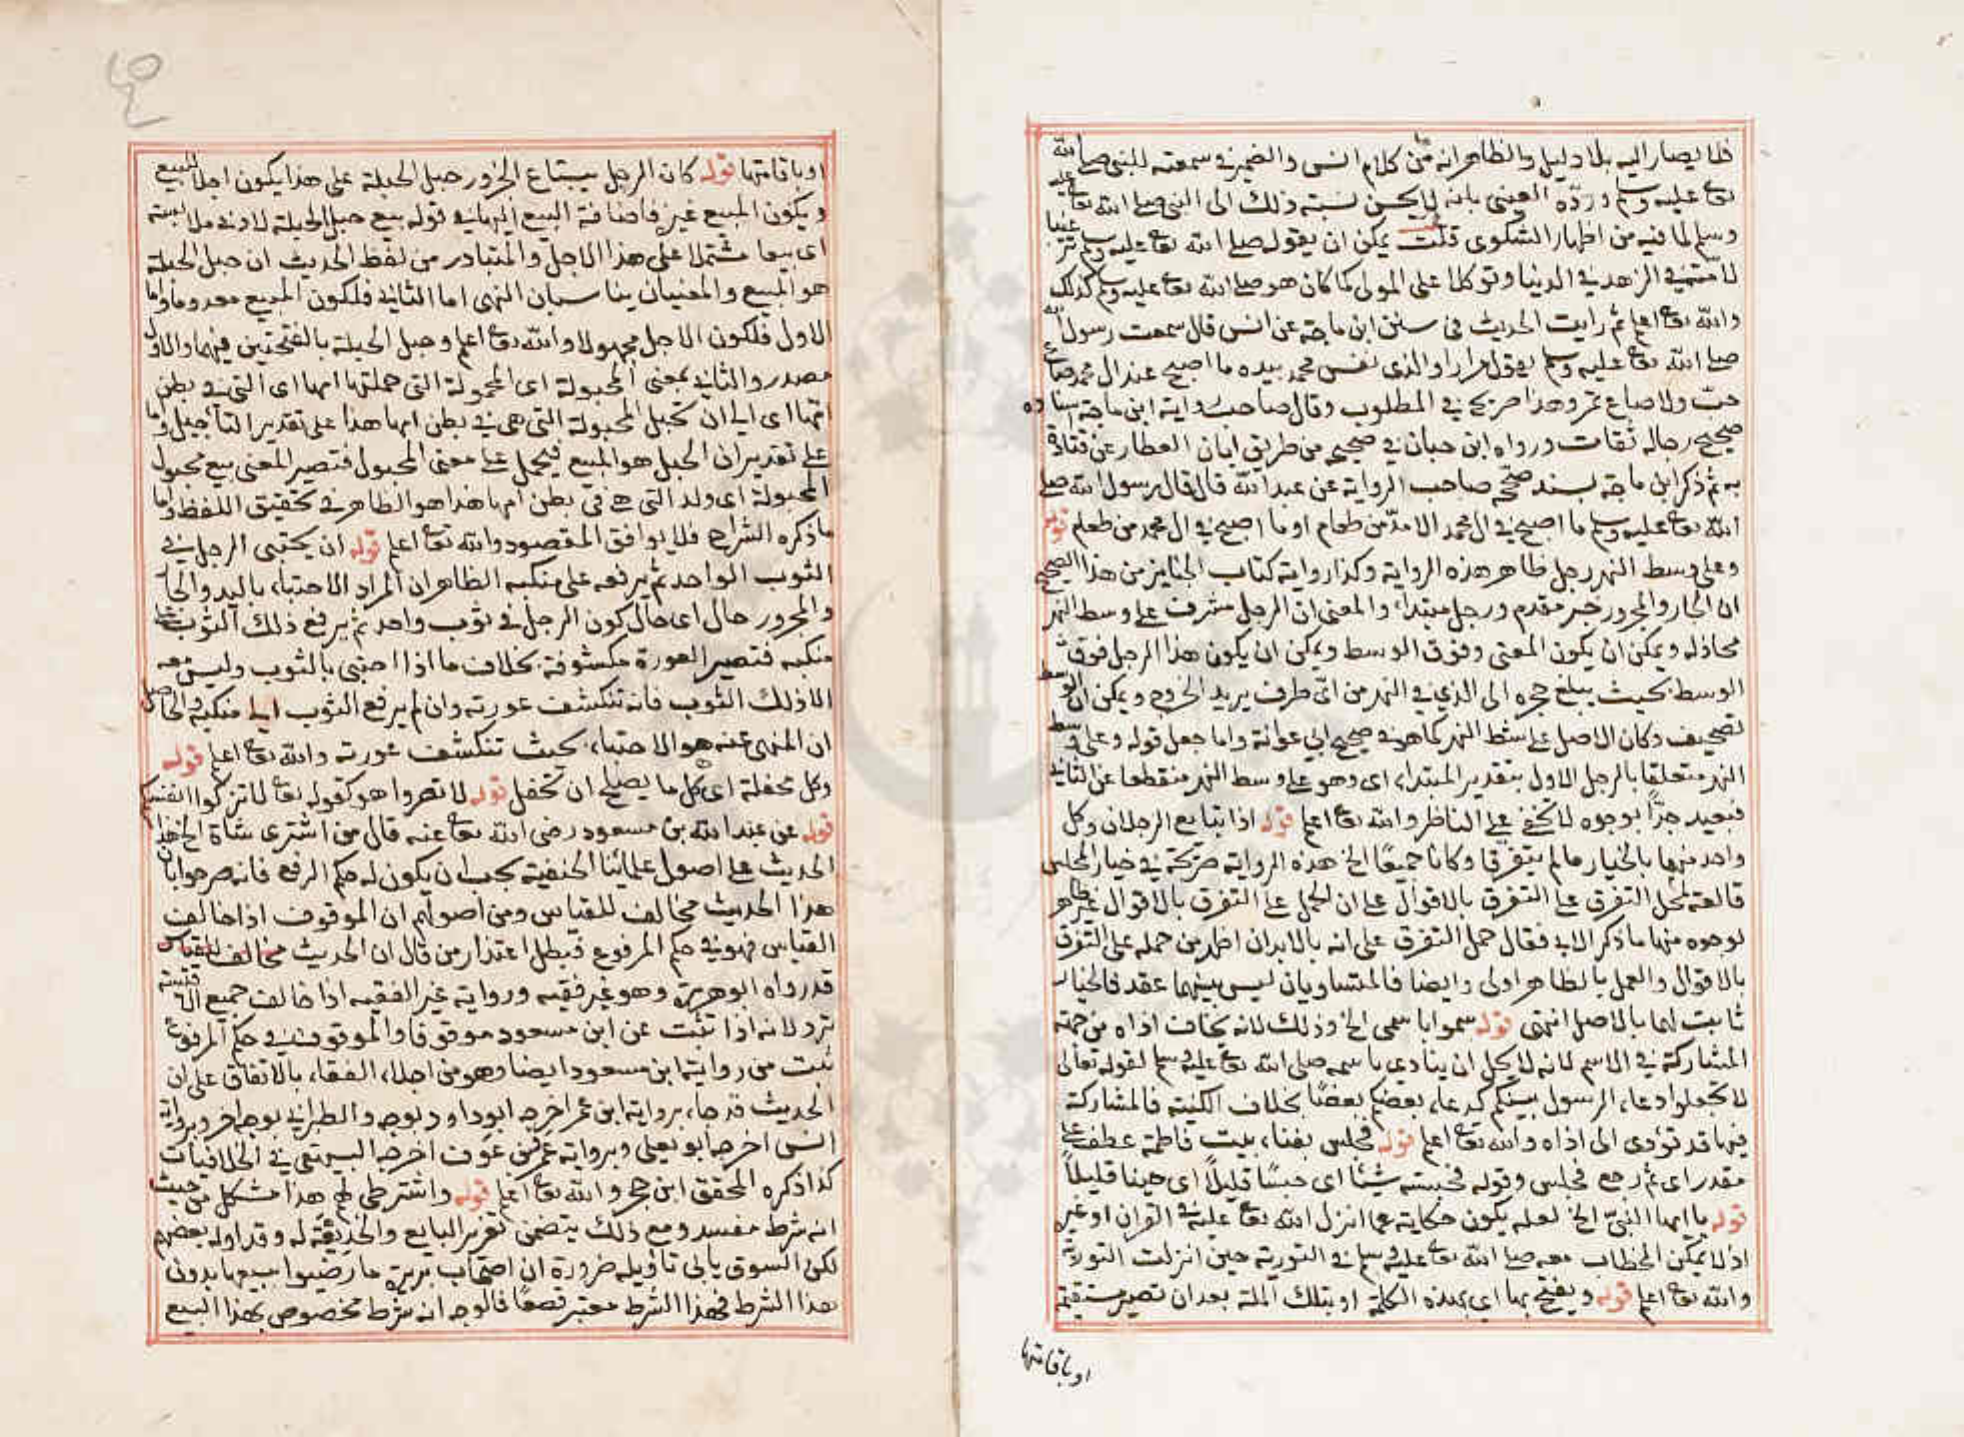 فلا يصار اليه بلا دليل والظاهر انه من كلام انس والضمير في سمعته للنبي صلى الله
تعا عليه وسلم ورده العيني بانه لا يحسن نسبة ذلك الى النبي صلى الله تعا عليه
وسلم لما فيه من اظهار الشكوى قلت يمكن ان يقوله صلى الله تعا عليه وسلم ترغيبا
لامته في الزهد في الدنيا وتوكلا على المولى كما كان هو صلى الله تعا عليه وسلم كذلك
والله تعا اعلم ثم رايت الحديث في سنن ابن ماجة عن انس قال سمعت رسول الله
صلى الله تعا عليه وسلم يقول مرارا والذي نفس محمد بيده ما اصبح عند ال محمد صاع
حب ولا صاع تمر وهذا صريح في المطلوب وقال صاحب زوايد ابن ماجة اسناده
صحيح رجاله ثقات ورواه ابن حبان في صحيحه من طريق ابان العطار عن قتادة
به ثم ذكر ابن ماجة بسند صححه صاحب الزوايد عن عبد الله قال قال رسول الله صلى
الله تعا عليه وسلم ما اصبح في ال محمد الا مد من طعام او ما اصبح في ال محمد مد من طعام قوله
وعلى وسط النهر رجل ظاهر هذه الرواية وكذا رواية كتاب الجنايز من هذا الصحيح
ان الجار والمجرور خبر مقدم ورجل مبتداء والمعنى ان الرجل مشرف على وسط النهر
محاذله ويمكن ان يكون المعنى وفوق الوسط ويمكن ان يكون هذا الرجل فوق
الوسط بحيث يبلغ حجره الى الذي في النهر من اي طرف يريد الخروج ويمكن ان الوسط
تصحيف وكان الاصل على شط النهر كما هو في صحيح ابي عوانة واما جعل قوله وعلى وسط
النهر متعلقا بالرجل الاول بتقدير المبتداء اى وهو على وسط النهر منقطعا عن الثاني
فبعيد جدا بوجوه لا تخفى على الناظر والله تعا اعلم قوله اذا تبايع الرجلان وكل
واحد منهما بالخيار ما لم يتفرقا وكانا جميعا الخ هذه الرواية صريحة في خيار المجلس
قالعة لحمل التفرق على التفرق بالاقوال على ان الحمل على التفرق بالاقوال غير ظاهر
لوجوه منها ما ذكر الابي فقال حمل التفرق على انه بالابدان اظهر من حمله على التفرق
بالاقوال والعمل بالظاهر اولى وايضا فالمتساويان ليس بينهما عقد فالخيار
ثابت لهما بالاصل انتهى قوله سموا باسمي الخ وذلك لانه يخاف اذاه من جهة
المشاركة في الاسم لانه لا يحل ان ينادي باسمه صلى الله تعا عليه وسلم لقوله تعالى
لا تجعلوا دعاء الرسول بينكم كدعاء بعضكم بعضا بخلاف الكنية فالمشاركة
فيها قد تؤدي الى اذاه والله تعا اعلم قوله فجلس بفناء بيت فاطمة عطف على
مقدر اى ثم رجع فجلس وقوله فحبسته شيئا اى حبسا قليلا اى حينا قليلا
قوله يا ايها النبي الخ لعله يكون حكاية عما انزل الله تعا عليه في القران او غيره
اذ لا يمكن الخطاب معه صلى الله تعا عليه وسلم في التورية حين انزلت التورية
والله تعا اعلم قوله ويفتح بها اى بهذه الكلمة او بتلك الملة بعد ان تصير مستقيمة
او باقامتها
او باقامتها قوله كان الرجل يبتاع الجزور حبل الحبلة على هذا يكون اجلا للبيع
ويكون المبيع غيره فاضافة البيع اليها في قوله بيع حبل الحبلة لادنى ملابسة
اى بيعا مشتملا على هذا الاجل والمتبادر من لفظ الحديث ان حبل الحبلة
هو المبيع والمعنيان يناسبان النهي اما الثاني فلكون المبيع معدوما واما
الاول فلكون الاجل مجهولا والله تعا اعلم وحبل الحبلة بالفتحتين فيهما والاول
مصدر والثاني بمعنى المحبولة اى المحمولة التى حملتها امها اى التي في بطن
امها اى الى ان تحبل المحبولة التى هى في بطن امها هذا على تقدير التأجيل واما
على تقدير ان الحبل هو المبيع فيحمل على معنى المحبول فتصير المعنى بيع محبول
المحبولة اى ولد التى هى في بطن امها هذا هو الظاهر في تحقيق اللفظ واما
ماذكره الشراح فلا يوافق المقصود والله تعا اعلم قوله ان يحتبى الرجل في
الثوب الواحد ثم يرفعه على منكبه الظاهر ان المراد الاحتباء باليد والجار
والمجرور حال اى حال كون الرجل في ثوب واحد ثم يرفع ذلك الثوب على
منكبه فتصير العورة مكشوفة بخلاف ما اذا احتبى بالثوب وليس معه
الا ذلك الثوب فانه تنكشف عورته وان لم يرفع الثوب الى منكبه والحاصل
ان المنهى عنه هو الاحتباء بحيث تنكشف عورته والله تعا اعلم قوله
وكل محفلة اى كل ما يصلح ان تحفل قوله لا تصروا هو كقوله تعا لا تزكوا انفسكم
قوله عن عبد الله بن مسعود رضى الله تعا عنه قال من اشترى شاة الخ هذا
الحديث على اصول علمائنا الحنفية يجب ان يكون له حكم الرفع فانه صرحوا بان
هذا الحديث مخالف للقياس ومن اصولهم ان الموقوف اذا خالف
القياس فهو في حكم المرفوع فبطل اعتذار من قال ان الحديث مخالف للقياس
قد رواه ابو هريرة وهو غير فقيه ورواية غير الفقيه اذا خالف جميع الاقيسة
ترد لانه اذا تثبت عن ابن مسعود موقوفا والموقوف في حكم المرفوع
ثبت من رواية ابن مسعود ايضا وهو من اجلاء الفقاء بالاتفاق على ان
الحديث قد جاء برواية ابن عمر اخرجه ابو داود بوجه والطبراني بوجه اخر وبرواية
انس اخرجه ابو يعلى وبرواية عمرو بن عوف اخرجه البيهقي في الخلافيات
كذا ذكره المحقق ابن حجر والله تعا اعلم قوله واشترطى لهم هذا مشكل من حيث
انه شرط مفسد ومع ذلك يتضمن تغرير البايع والخديعة له وقد اوله بعضهم
لكن السوق يأبى تأويله ضرورة ان اصحاب بريرة ما رضوا ببيعها بدون
هذا الشرط فهذا الشرط معتبر قطعا فالوجه انه شرط مخصوص بهذا البيع